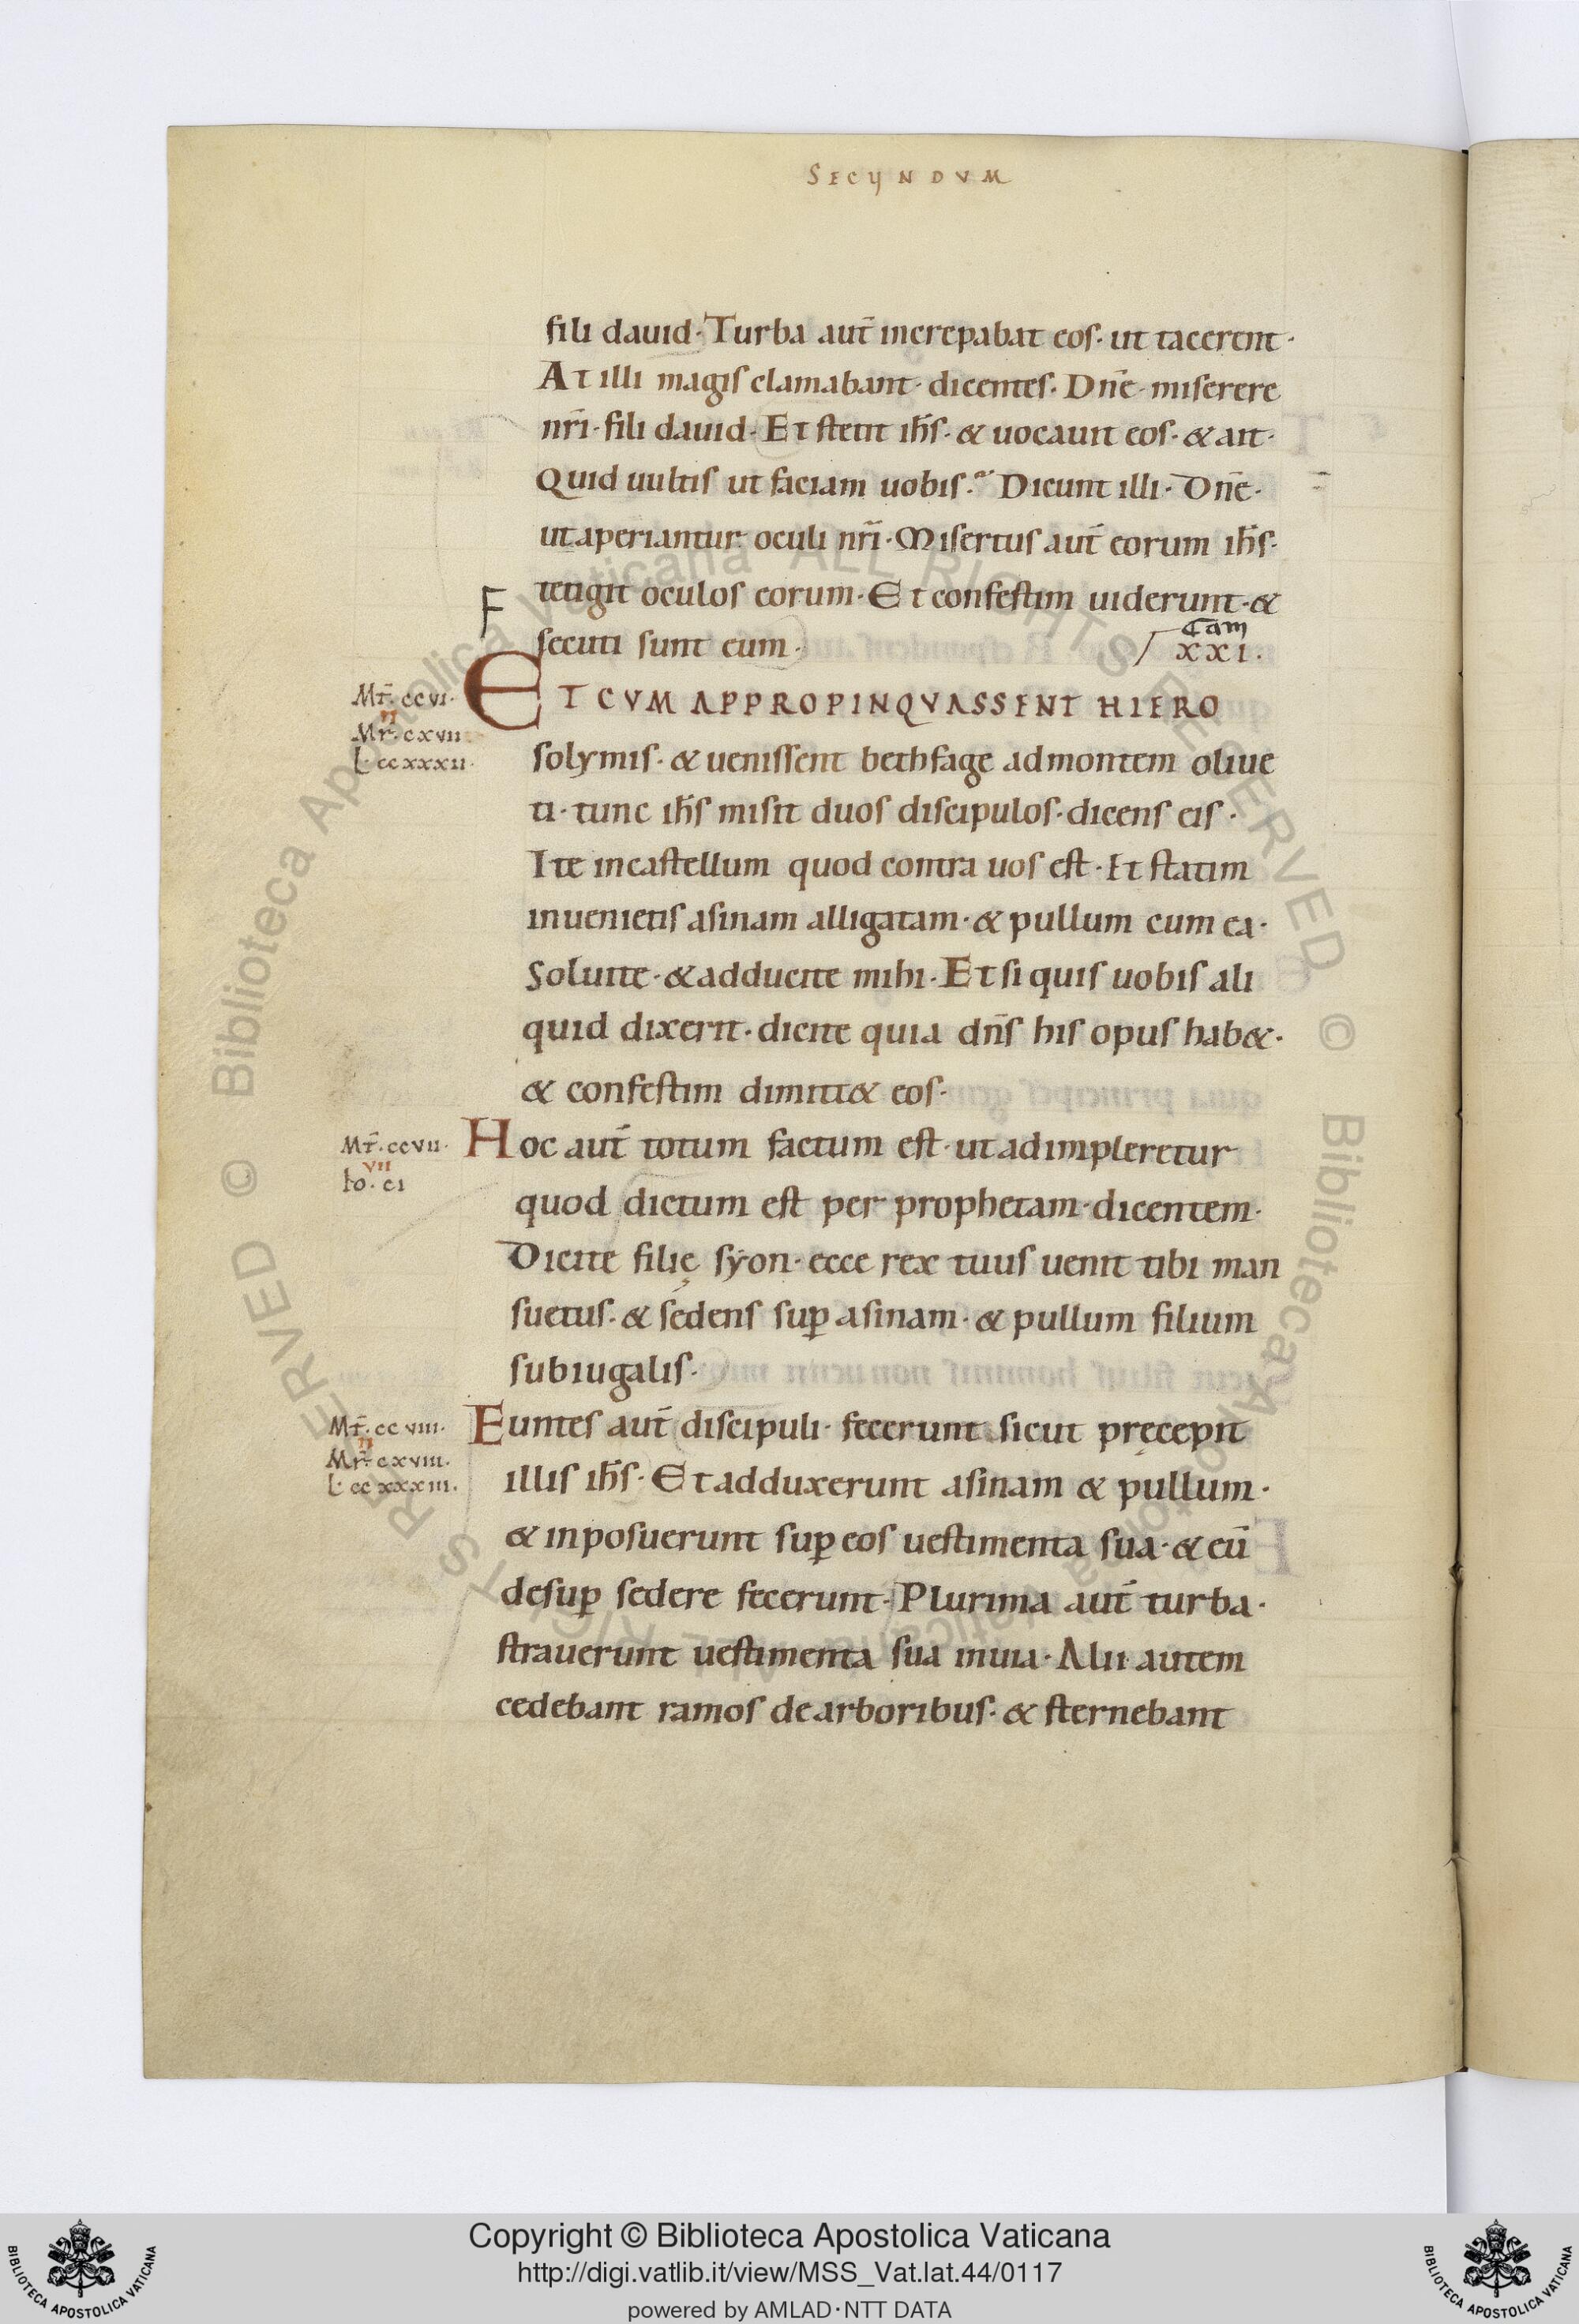 SECUNDVM
fili dauid· Turba aut̄ increpabat eos· ut tacerent·
At illi magis clamabant· dicentes· Dn̄e· miserere
nr̄i· fili dauid· Et stetit ih̄s· & uocauit eos· & ait·
Quid uultis ut faciam uobis? Dicunt illi· Dn̄e·
ut aperiantur oculi nr̄i· Misertus aut̄ eorum ih̄s·
F
tetigit oculos eorum· Et confestim uiderunt· &
secuti sunt eum·
Cam
XXI·
Mt̄· ccvi·
II
Mr̄· cxvii·
L· ccxxxii·
ET CVM APPROPINQVASSENT HIERO
solymis· & uenissent bethfage ad montem oliue
ti· tunc ih̄s misit duos discipulos· dicens eis·
Ite in castellum quod contra uos est· Et statim
inuenietis asinam alligatam· & pullum cum ea·
Soluite· & adducite mihi· Et si quis uobis ali
quid dixerit· dicite quia dn̄s his opus hab&·
& confestim dimitt& eos·
Mt̄· ccvii·
VII
Io· ci
Hoc aut̄ totum factum est· ut adimpleretur
quod dictum est per prophetam· dicentem·
Dicite filię syon· ecce rex tuus uenit tibi man
suetus· & sedens sup̱ asinam· & pullum filium
subiugalis·
Mt̄· ccviii·
II
Mr̄· cxviii·
L· ccxxxiii·
Euntes aut̄ discipuli· fecerunt sicut pręcepit
illis ih̄s· Et adduxerunt asinam & pullum·
& inposuerunt sup̱ eos uestimenta sua· & eū
desup̱ sedere fecerunt· Plurima aut̄ turba·
strauerunt uestimenta sua in uia· Alii autem
cedebant ramos de arboribus· & sternebant
© Biblioteca Apostolica Vaticana ALL RIGHTS RESERVED
© Biblioteca Apostolica Vaticana ALL RIGHTS RESERVED
BIBLIOTECA APOSTOLICA VATICANA
Copyright © Biblioteca Apostolica Vaticana
http://digi.vatlib.it/view/MSS_Vat.lat.44/0117
powered by AMLAD·NTT DATA
BIBLIOTECA APOSTOLICA VATICANA